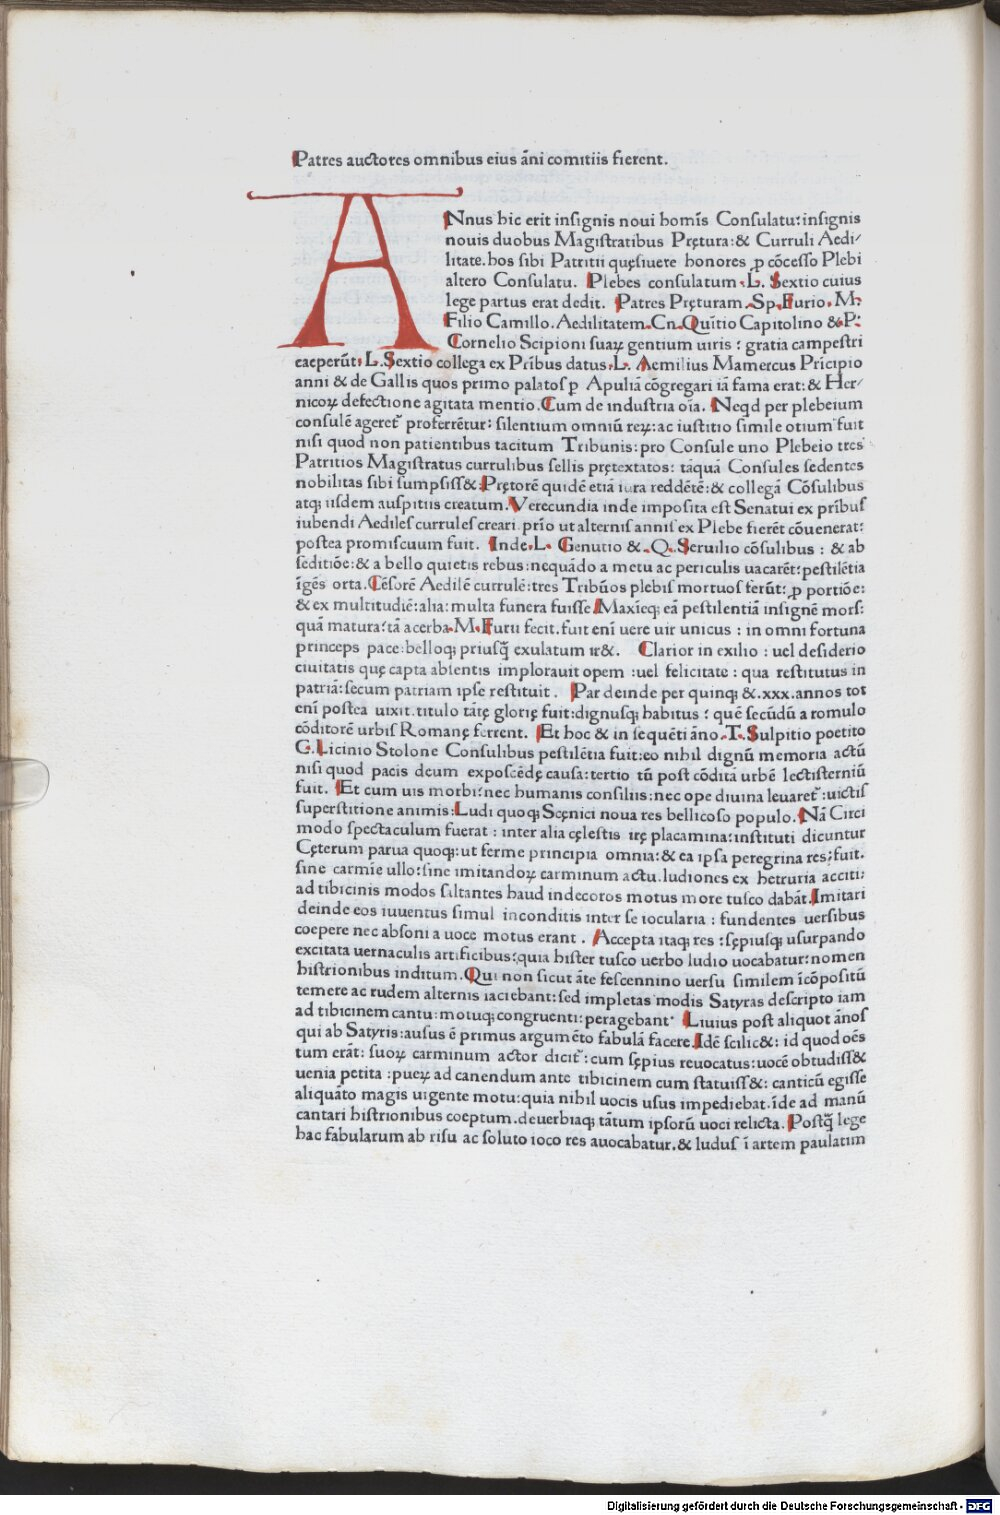 Patres auctores omnibus eius āni comitiis fierent.
ANnus hic erit insignis noui homīs Consulatu: insignis
nouis duobus Magistratibus Pręturа: & Curruli Aedi⸗
litate. hos sibi Patritii quęsiuere honores ꝓ cōcesso Plebi
altero Consulatu. Plebes consulatum. L. Sextio cuius
lege partus erat dedit. Patres Pręturam. Sp. Furio. M.
Filio Camillo. Aedilitatem. Cn. Quītio Capitolino & P.
Cornelio Scipioni suaꝝ gentium uiris: gratia campestri
caeperūt. L. Sextio collega ex Pribus datus. L. Aemilius Mamercus Prīcipio
anni & de Gallis quos primo palatos ꝓ Apuliā cōgregari iā fama erat: & Her⸗
nicoꝝ defectione agitata mentio. Cum de industria oīa. Neqd per plebeium
consulē ageret᷑ proferrētur: silentium omniū reꝝ: ac iustitio simile otium fuit
nisi quod non patientibus tacitum Tribunis: pro Consule uno Plebeio tres
Patritios Magistratus currulibus sellis prętextatos: tāquā Consules sedentes
nobilitas sibi sumpsiss&: Prętorē quidē etiā iura reddētē: & collegā Cōsulibus
atq; iisdem auspitiis creatum. Verecundia inde imposita est Senatui ex pribus
iubendi Aediles currules creari. prīo ut alternis annis ex Plebe fierēt cōuenerat:
postea promiscuum fuit. Inde. L. Genutio &. Q. Seruilio cōsulibus: & ab
seditiōe: & a bello quietis rebus: nequādo a metu ac periculis uacarēt: pestilētia
īgēs orta. Cēsorē Aedilē currulē: tres Tribūos plebis mortuos ferūt: ꝓ portiōe:
& ex multitudiē: alia: multa funera fuisse Maxieq; eā pestilentiā insignē mors:
quā matura: tā acerba. M. Furii fecit. fuit enī uere uir unicus: in omni fortuna
princeps pace: belloq; priusq̄ exulatum ir&. Clarior in exilio: uel desiderio
ciuitatis quę capta absentis implorauit opem: uel felicitate: qua restitutus in
patriā: secum patriam ipse restituit. Par deinde per quinq; &. xxx. annos tot
enī postea uixit. titulo tātę glorię fuit: dignusq; habitus: quē secūdū a romulo
cōditorē urbis Romanę ferrent. Et hoc & in sequēti āno. T. Sulpitio poetito
C. Licinio Stolone Consulibus pestilētia fuit: eo nihil dignū memoria actū
nisi quod pacis deum exposcēdę causa: tertio tū post cōditā urbē lectisterniū
fuit. Et cum uis morbi: nec humanis consiliis: nec ope diuina leuaret᷑: uictis
superstitione animis: Ludi quoq; Scęnici noua res bellicoso populo. Nā Circi
modo spectaculum fuerat: inter alia cęlestis irę placamina: instituti dicuntur
Cęterum parua quoq: ut ferme principia omnia: & ea ipsa peregrina res; fuit.
sine carmīe ullo: sine imitandoꝝ carminum actu. ludiones ex hetruria acciti:
ad tibicinis modos saltantes haud indecoros motus more tusco dabāt. Imitari
deinde eos iuuentus simul inconditis inter se iocularia: fundentes uersibus
coepere nec absoni a uoce motus erant. Accepta itaq; res: sępiusq; usurpando
excitata uernaculis artificibus: quia hister tusco uerbo ludio uocabatur: nomen
histrionibus inditum. Qui non sicut āte fescennino uersu similem īcōpositū
temere ac rudem alternis iaciebant: sed impletas modis Satyras descripto iam
ad tibicinem cantu: motuq; congruenti: peragebant. Liuius post aliquot ānos
qui ab Satyris: ausus ē primus argumēto fabulā facere. Idē scilic&: id quod oēs
tum erāt: suoꝝ carminum actor dicit᷑: cum sępius reuocatus: uocē obtudiss&
uenia petita: pueꝝ ad canendum ante tibicinem cum statuiss&: canticū egisse
aliquāto magis uigente motu: quia nihil uocis usus impediebat. īde ad manū
cantari histrionibus coeptum. deuerbiaq; tātum ipsorū uoci relicta. Postq̄ lege
hac fabularum ab risu ac soluto ioco res auocabatur. & ludus ī artem paulatim
Digitalisierung gefördert durch die Deutsche Forschungsgemeinschaft - DFG